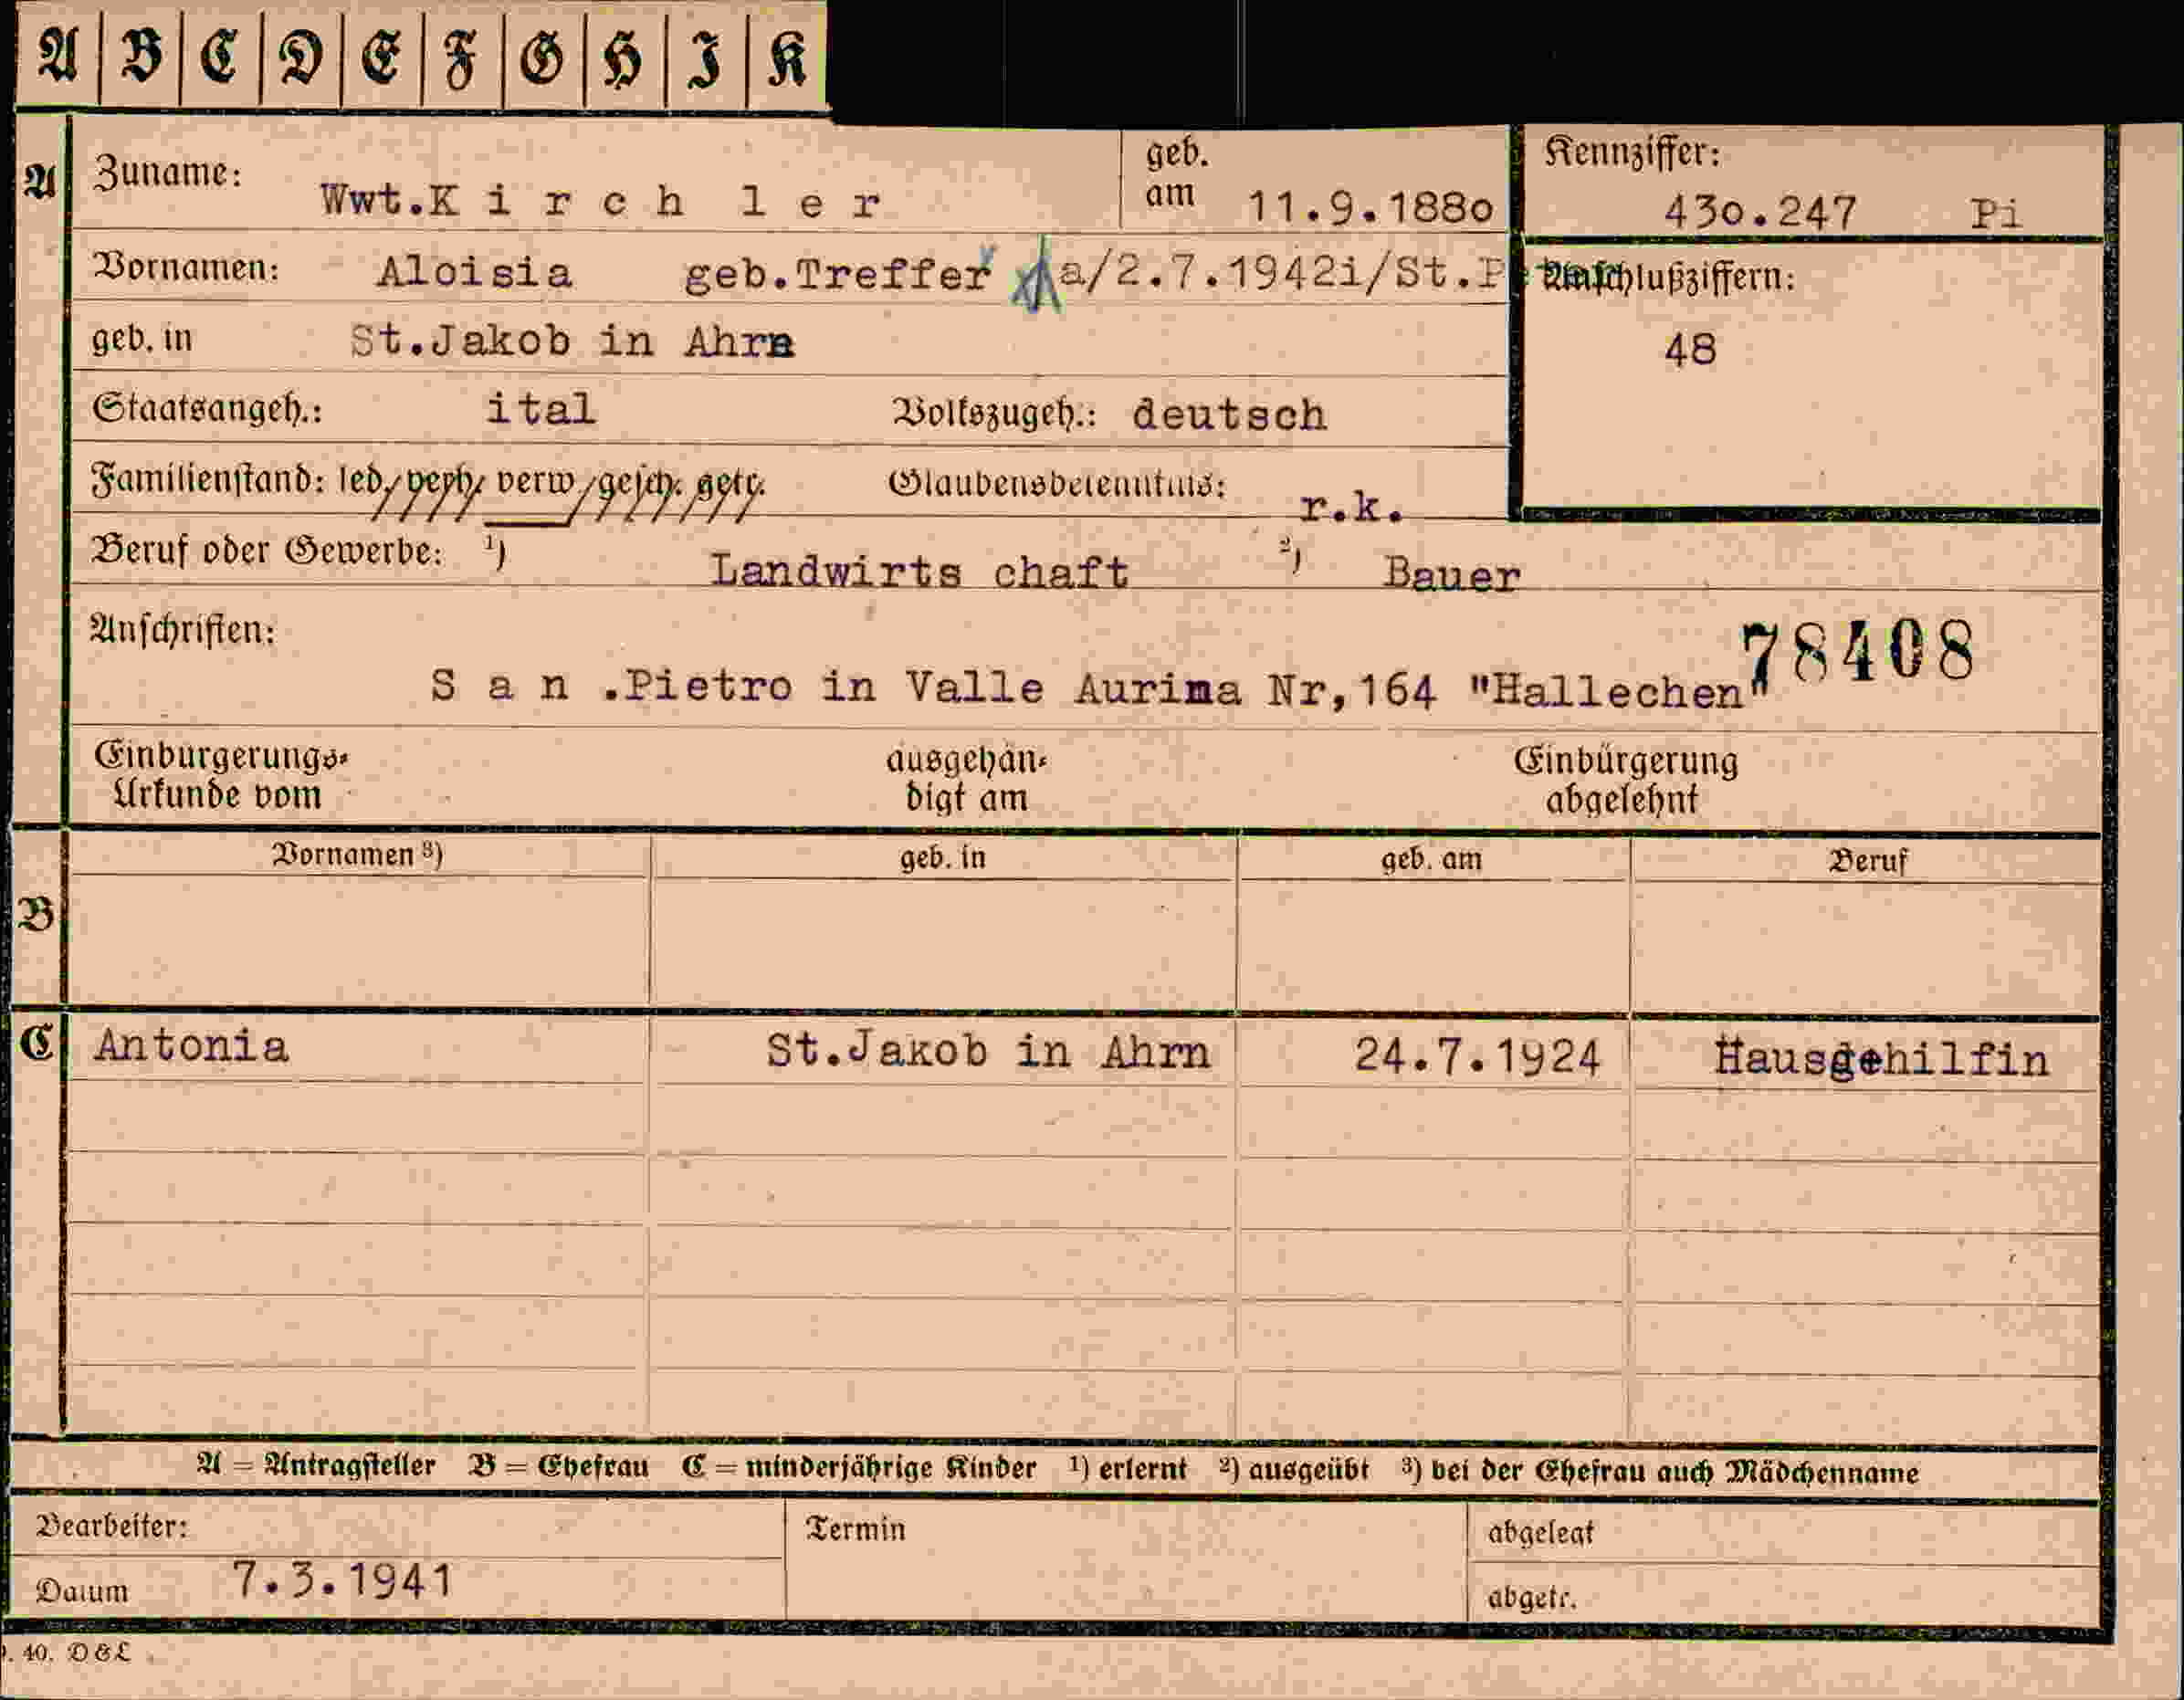 A B C D E F G H I K
A Zuname: Wwt.K i r c h l e r geb. am 11.9.1880 Kennziffer: 430.247 Pi
Vornamen: Aloisia geb.Treffer a/2.7.1942i/St.P Anschlußziffern:
geb. in St.Jakob in Ahrn 48
Staatsangeh.: ital Volkszugeh.: deutsch
Familienstand: led. verh. verw. gesch. getr. Glaubensbekenntnis: r.k.
Beruf oder Gewerbe: ¹) Landwirts chaft ²) Bauer
Anschriften: 78408
S a n .Pietro in Valle Aurina Nr,164 "Hallechen"
Einbürgerungs-Urkunde vom ausgehän-digt am Einbürgerung abgelehnt
Vornamen ³) geb. in geb. am Beruf
B
C Antonia St.Jakob in Ahrn 24.7.1924 Hausgehilfin
A = Antragsteller B = Ehefrau C = minderjährige Kinder ¹) erlernt ²) ausgeübt ³) bei der Ehefrau auch Mädchenname
Bearbeiter: Termin abgelegt
Datum 7.3.1941 abgetr.
. 40. D&L